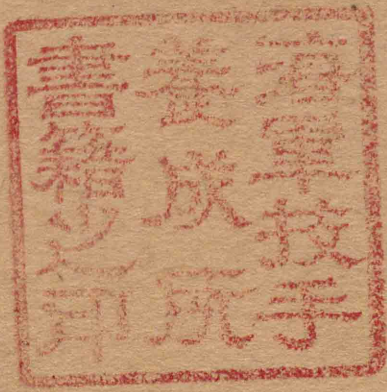 海軍技手
養成所
書籍之印